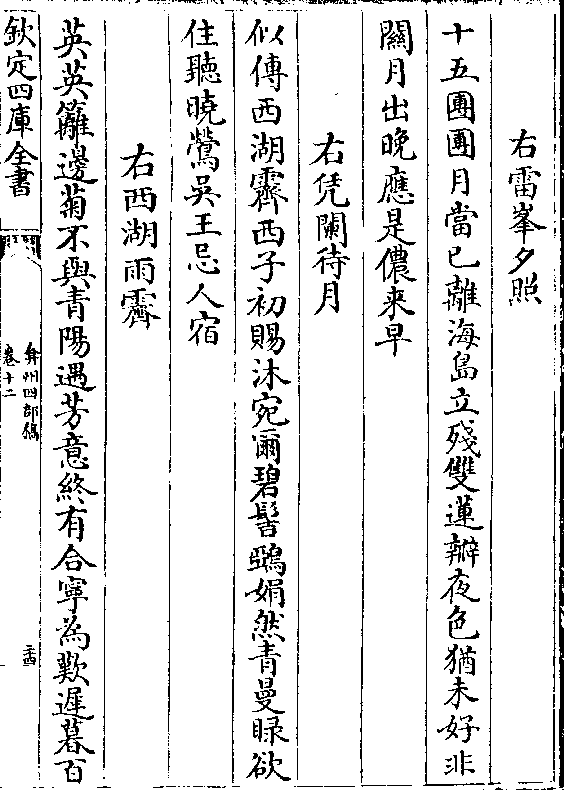 右雷峯夕照
十五團團月當已離海島立殘雙蓮瓣夜色猶未好非
闗月出晚應是儂来早
右凭闌待月
似傳西湖霽西子初賜沐宛爾碧髻鵶娟然青曼睩欲
住聽曉鶯吳王忌人宿
右西湖雨霽
英英籬邊菊不與青陽遇芳意終有合寧為歎遲暮百
欽定四庫全書
弇州四部稿
卷十二